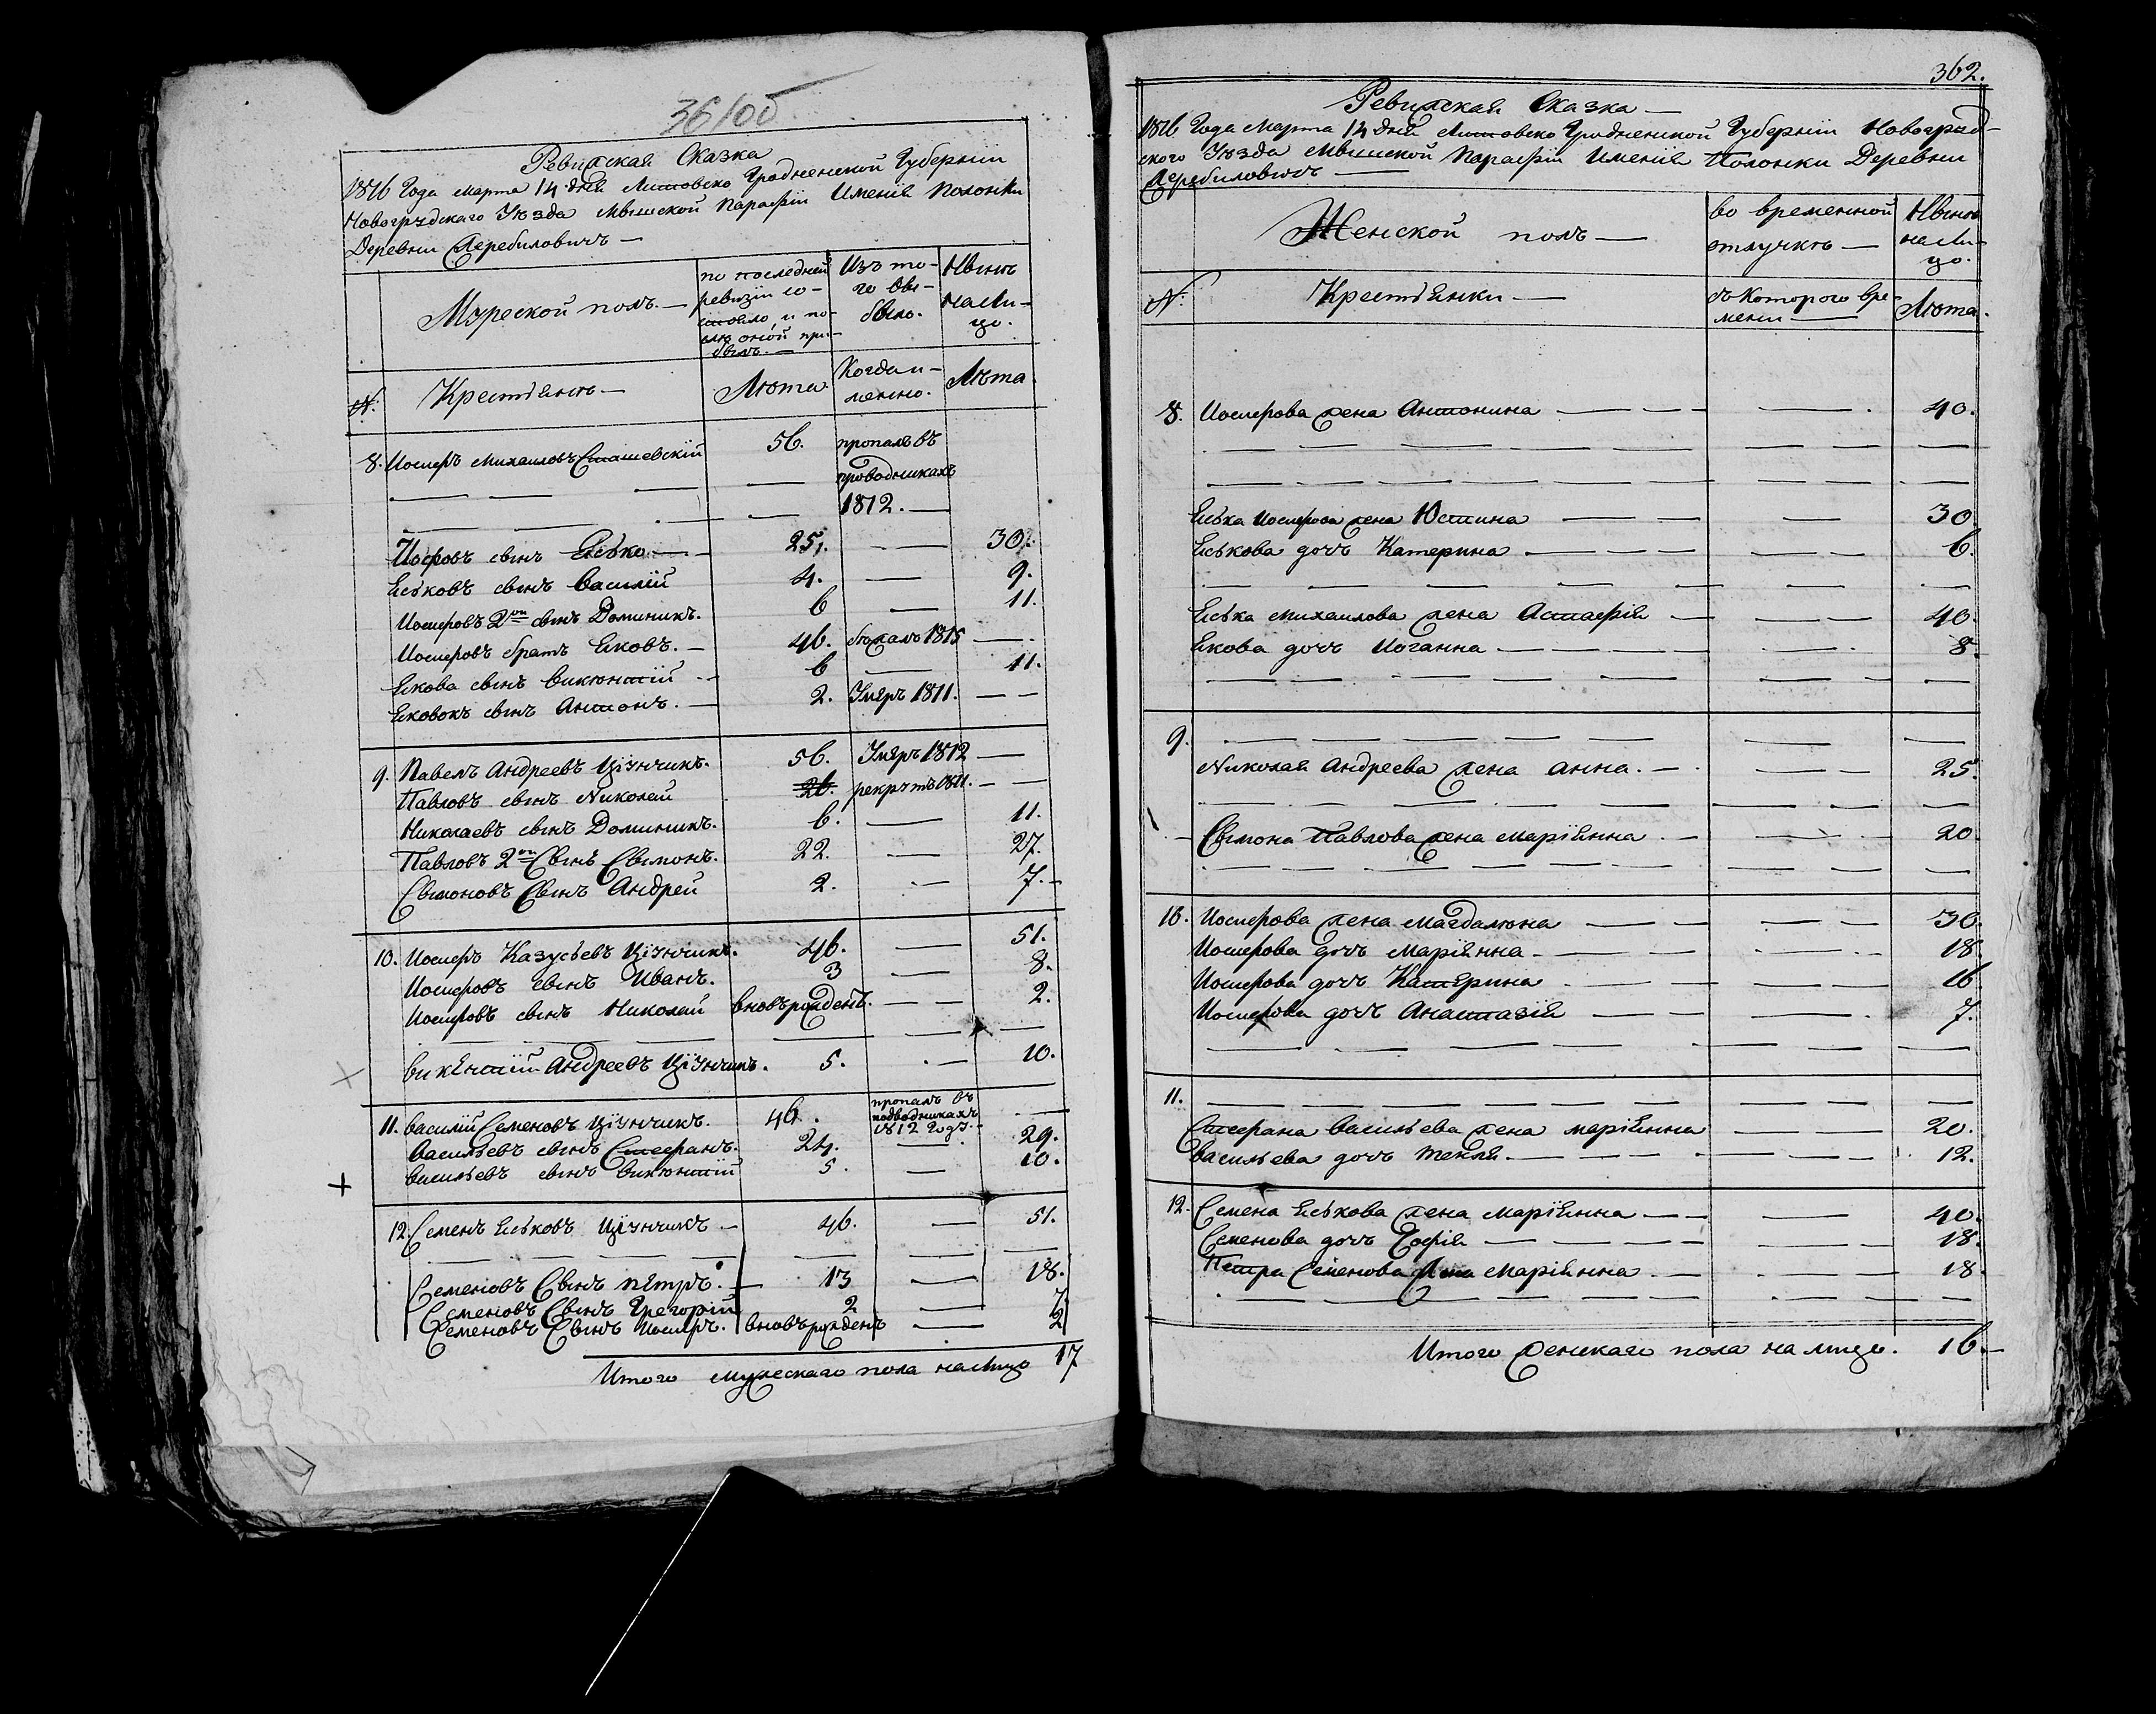 361об
Ревизская Сказка
1816 Года марта 14 дня Литовско Гродненской Губерніи
Новогрудскаго Уезда мышской Парафіи Именія Полонки
Деревни Жеребиловичъ —
Мужеской полъ. —
по последней ревизіи состояло, и после оной прибылъ. —
Изъ того выбыло.
Нынѣ налицо.
№:
Крестьянѣ —
Лѣта
Когда именно.
Лѣта.
8. Иосифъ михаиловъ Сташевскій 56. пропалъ въ
проводникахъ
1812. —
Иосифовъ сынъ Еська — 25. — 30.
Еськовъ сынъ василій 4. — 9.
Иосифовъ 2ой сынъ Доминикъ. 6 — 11.
Иосифовъ братъ Яковъ. — 46. бѣжалъ 1815 —
Якова сынъ викентій 6 — 11.
Яковокъ сынъ Антонъ. — 2. Умеръ 1811. — —
9. Павелъ Андреевъ Цюнчикъ. 56. Умеръ 1812 —
Павловъ сынъ Николай 26. рекрутъ 1811. — —
Николаевъ сынъ Доминикъ. 6. — 11.
Павловъ 2ой Сынъ Сымонъ. 22. — 27.
Сымоновъ Сынъ Андрей 2. — 7. —
10. Иосифъ Казусьевъ Цюнчикъ. 46. — 51.
Иосифовъ сынъ Иванъ. 3 — 8.
Иосифовъ сынъ Николай вновърожденъ. — — 2.
викентій Андреевъ Цюнчикъ. 5. — 10.
11. василій Семеновъ Цюнчикъ. 46. пропалъ въ подводникахъ 1812 году. —
Васильевъ сынъ Стефанъ. 24. — 29.
васильевъ сынъ викентій 5. — 10.
12. Семенъ Еськовъ Цюнчикъ — 46. — 51.
Семеновъ Сынъ петръ. — 13 — 18.
Семеновъ Сынъ Грегорій 2 — 7
Семеновъ Сынъ Иосифъ. вновърожденъ — 2
Итого мужескаго пола налицо 17
362.
Ревизская Сказка —
1816 Года марта 14 дня Литовско Гродненской Губерніи Новогруд-
ского Уезда мышской Парафіи Именія Полонки Деревни
Жеребиловичъ —
Женской полъ —
во временной отлучкѣ —
Нынѣ налицо.
№:
Крестьянки —
съ которого времени —
Лѣта.
8. Иосифова жена Антонина — — — 40.
Еська Иосифова жена Юстина — — — 30
Еськова дочь Катерина — — — 6.
Еська михаилова жена Астафія — — — 40.
Якова дочь Иоганна — — — 8.
9.
Николая Андреева жена анна. — — — 25.
Сымона Павлова жена маріянна. — — 20.
10. Иосифова жена магдалена — — — 30.
Иосифова дочь маріянна — — — 18.
Иосифова дочь Катерина — — — 16
Иосифова дочь Анастазія — — — 7.
11.
Стефана васильева жена маріянна — — 20.
васильева дочь текля. — — — 12.
12. Семена Еськова жена маріянна — — — 40.
Семенова дочь Зофія — — — 18.
Петра Семенова жена маріянна. — — 18
Итого женскаго пола на лицо. 16. —